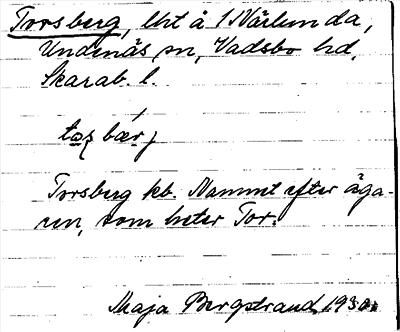 Torsberg, lht å 1 Närlunda,
Undenäs sn, Vadsbo hd,
Skarab. l.
Torsberg kb. Namnet efter äga-
ren, som heter Tor.
Maja Bergstrand, 1930.